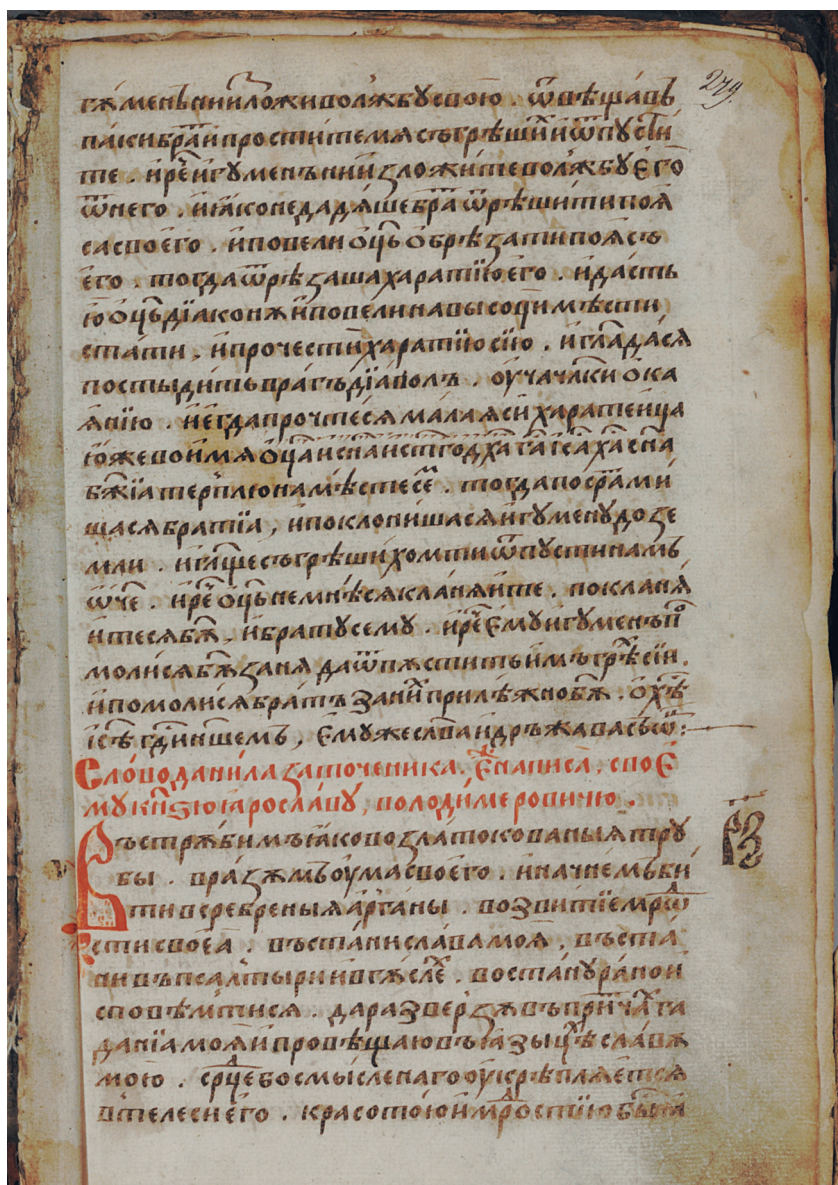 279
гѫменъ с ни̑ ложи волѫжбу свою . ѿвѣща́въ
па́ки бра̑ и простите мя съгрѣши́х и ѿпусти́
те . и ре̑ игуменъ и изложите волѫжбу его̀
ѿ него . и яко не дадя́ше бра̑ ѿрѣши́ти поя̀
са своего . и повели оц҃ь обрѣзати поясъ
его . тогда ѿрѣзаша харатїю его . и да́сть
ю оц҃ь дїаконѫ и повели на высоцѣ мѣсти
ста́ти , и прочести харатїю сїю . и гл҃ада ся
постыдить врагъ дїаволъ . оуча чл҃ки ока
я́нїю . и егда прочтеся ма́лая си хара́тейца
юже во имя оц҃а и сн҃а и ст҃го дх҃а га̑ іс҃а ха̑ сн҃а
бж҃їа терплю на мѣсте се̑ . тогда посра́ми
шася братїа , и поклонишася игумену до зе
мли . и гл҃ще съгрѣшихом ти ѿпусти на́мъ
ѿче . и ре̑ оц҃ь не мнѣ ся кланя́ите . покланя́
итеся бг҃ѫ , и брату сему . и ре̑ ему игуменъ по
молися бг҃ѫ за ня да ѿпѫстить имъ грѣ̑ сїи .
и помолися братъ за ни̑ прилѣжно бг҃ѫ . о хѣ̑
іс҃ѣ гд҃и нш҃емъ , емуже слава и дръжава съ ѿ :
Сло́во дани́ла заточеника , е̑ написа̀ , свое
му кн҃зю яросла́ву , володи́меровичю .
Въстрѫби́мъ я́ко во златокованыя тру
бы . в ра́зѫмъ оума̀ своего . и начнемъ би́
ти в сребреныя арга́ны . возвитїе мрⷣо
сти своеа̀ . въста́ни сла́ва моя̀ , въста́
ни въ псалтыри и в гѫ́сле̑ . востану ра́но и
сповѣм ти ся . да разверзѫ въ при́тча̑ га
данїа моя̀ и провѣща́ю въ язы́цѣ̑ сла́вѫ
мою . срⷣце бо смы́сленаго оукрѣпляется
в телеси его . красотою и мрⷣостїю бы́тїа